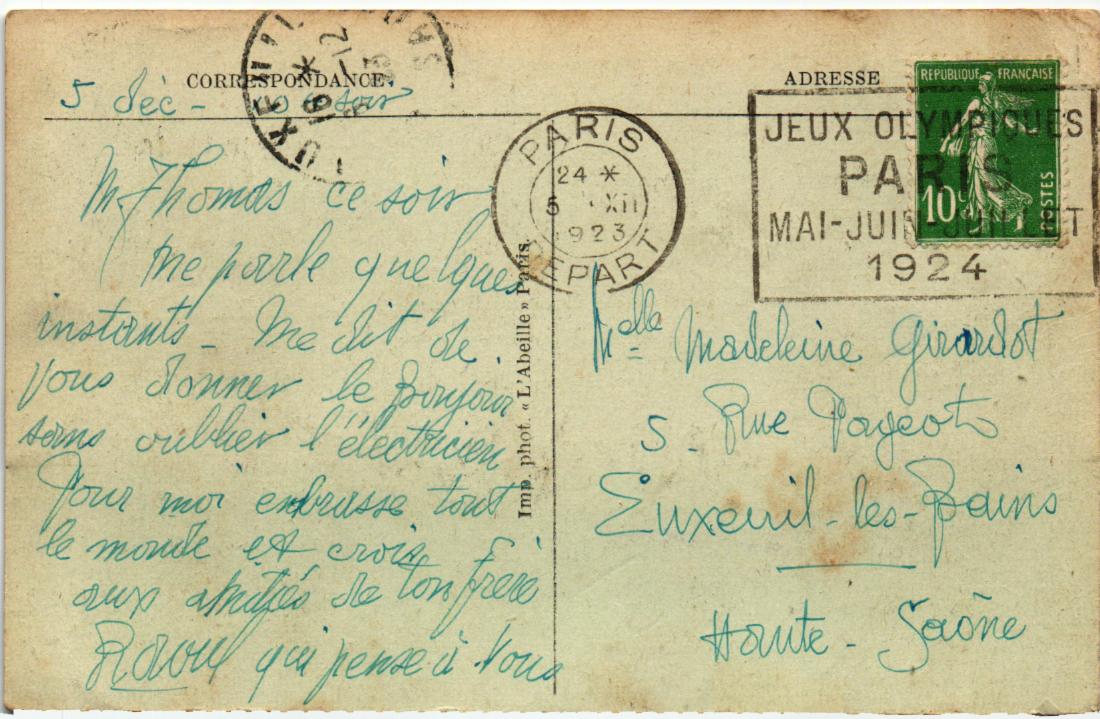 CORRESPONDANCE
ADRESSE
5 déc - soir
M Thomas ce soir
me parle quelques
instants - Me dit de
vous donner le bonjour
sans oublier l'électricien
Pour moi embrasse tout
le monde et crois
aux amitiés de ton frère
Raoul qui pense à vous
Imp. phot. « L'Abeille » Paris.
PARIS
24 *
5 XII
1923
DEPART
JEUX OLYMPIQUES
PARIS
MAI-JUIN-JUILLET
1924
REPUBLIQUE FRANÇAISE
10c
POSTES
Melle Madeleine Girardot
5 Rue Pageot
Luxeuil-les-Bains
Haute-Saône